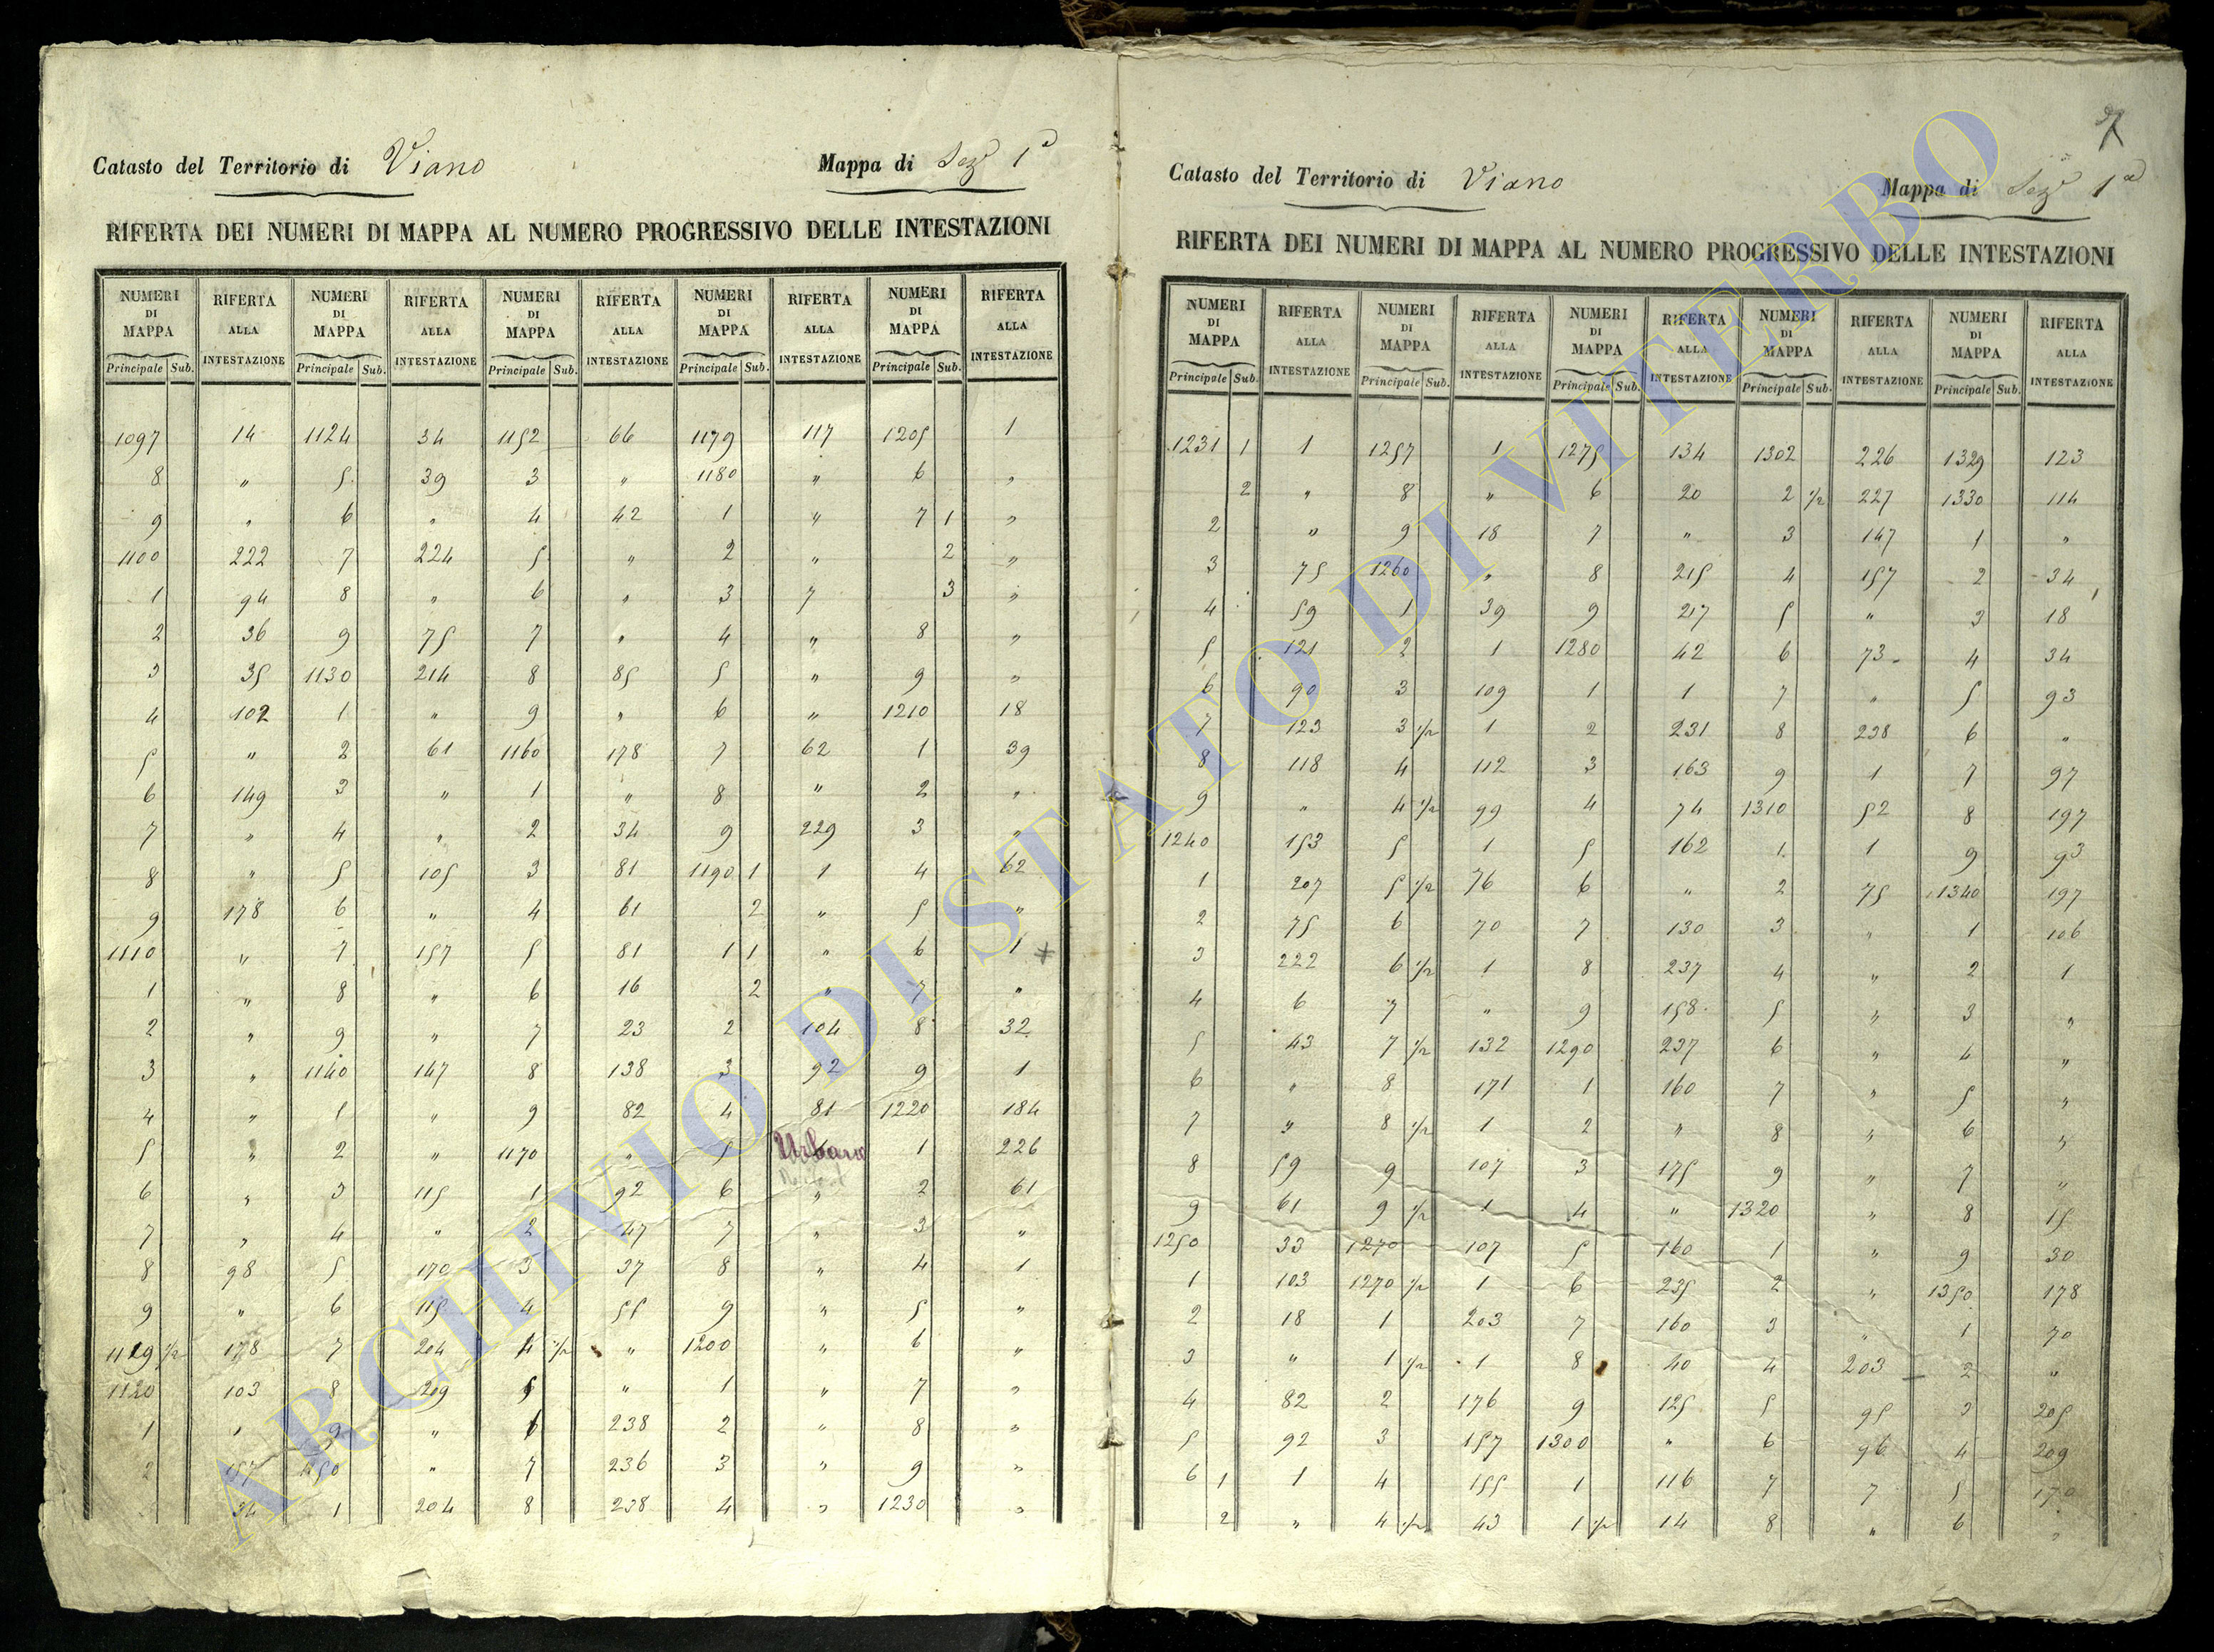 Catasto del Territorio di Viano Mappa di Sez.e 1a
RIFERTA DEI NUMERI DI MAPPA AL NUMERO PROGRESSIVO DELLE INTESTAZIONI
NUMERI DI MAPPA RIFERTA ALLA INTESTAZIONE NUMERI DI MAPPA RIFERTA ALLA INTESTAZIONE NUMERI DI MAPPA RIFERTA ALLA INTESTAZIONE NUMERI DI MAPPA RIFERTA ALLA INTESTAZIONE NUMERI DI MAPPA RIFERTA ALLA INTESTAZIONE
Principale Sub. Principale Sub. Principale Sub. Principale Sub. Principale Sub.
1097 14 1124 34 1152 66 1179 117 1205 1
8 " 5 39 3 " 1180 " 6 "
9 " 6 " 4 42 1 " 7 1 "
1100 222 7 224 5 " 2 " 2 "
1 94 8 " 6 " 3 7 3 "
2 36 9 75 7 " 4 " 8 "
3 35 1130 214 8 85 5 " 9 "
4 102 1 " 9 " 6 " 1210 18
5 " 2 61 1160 178 7 62 1 39
6 149 3 " 1 " 8 " 2 "
7 " 4 " 2 34 9 229 3 "
8 " 5 105 3 81 1190 1 1 4 62
9 178 6 " 4 61 2 " 5 "
1110 " 7 157 5 81 1 1 " 6 1
1 " 8 " 6 16 2 " 7 "
2 " 9 " 7 23 2 104 8 32
3 " 1140 147 8 138 3 92 9 1
4 " 1 " 9 82 4 81 1220 184
5 " 2 " 1170 " 5 Urbano 1 226
6 " 3 115 1 92 6 " 2 61
7 " 4 " 2 47 7 " 3 "
8 98 5 170 3 37 8 " 4 1
9 " 6 115 4 55 9 " 5 "
1129 1/2 178 7 204 4 1/2 " 1200 " 6 "
1120 103 8 209 5 " 1 " 7 "
1 " 9 " 6 238 2 " 8 "
2 157 1150 " 7 236 3 " 9 "
34 1 204 8 238 4 " 1230 "
Catasto del Territorio di Viano Mappa di Sez.e 1a
RIFERTA DEI NUMERI DI MAPPA AL NUMERO PROGRESSIVO DELLE INTESTAZIONI
NUMERI DI MAPPA RIFERTA ALLA INTESTAZIONE NUMERI DI MAPPA RIFERTA ALLA INTESTAZIONE NUMERI DI MAPPA RIFERTA ALLA INTESTAZIONE NUMERI DI MAPPA RIFERTA ALLA INTESTAZIONE NUMERI DI MAPPA RIFERTA ALLA INTESTAZIONE
Principale Sub. Principale Sub. Principale Sub. Principale Sub. Principale Sub.
1231 1 1 1257 1 1275 134 1302 226 1329 123
2 " 8 " 6 20 2 1/2 227 1330 114
2 " 9 18 7 " 3 147 1 "
3 75 1260 " 8 215 4 157 2 34
4 59 1 39 9 217 5 " 3 18
5 121 2 1 1280 42 6 73 4 34
6 90 3 109 1 1 7 " 5 93
7 123 3 1/2 1 2 231 8 238 6 "
8 118 4 112 3 163 9 1 7 97
9 " 4 1/2 99 4 74 1310 52 8 197
1240 153 5 1 5 162 1 1 9 93
1 207 5 1/2 76 6 " 2 75 1340 197
2 75 6 70 7 130 3 " 1 106
3 222 6 1/2 1 8 237 4 " 2 1
4 6 7 " 9 158 5 " 3 "
5 43 7 1/2 132 1290 237 6 " 4 "
6 " 8 171 1 160 7 " 5 "
7 " 8 1/2 1 2 " 8 " 6 "
8 59 9 107 3 175 9 " 7 "
9 61 9 1/2 1 4 " 1320 " 8 15
1250 33 1270 107 5 160 1 " 9 30
1 103 1270 1/2 1 6 235 2 " 1350 178
2 18 1 203 7 160 3 " 1 70
3 " 1 1/2 1 8 40 4 203 2 "
4 82 2 176 9 125 5 95 3 205
5 92 3 157 1300 " 6 96 4 209
6 1 1 4 155 1 116 7 7 5 170
2 " 4 1/2 43 1 1/2 14 8 " 6 "
ARCHIVIO DI STATO DI VITERBO